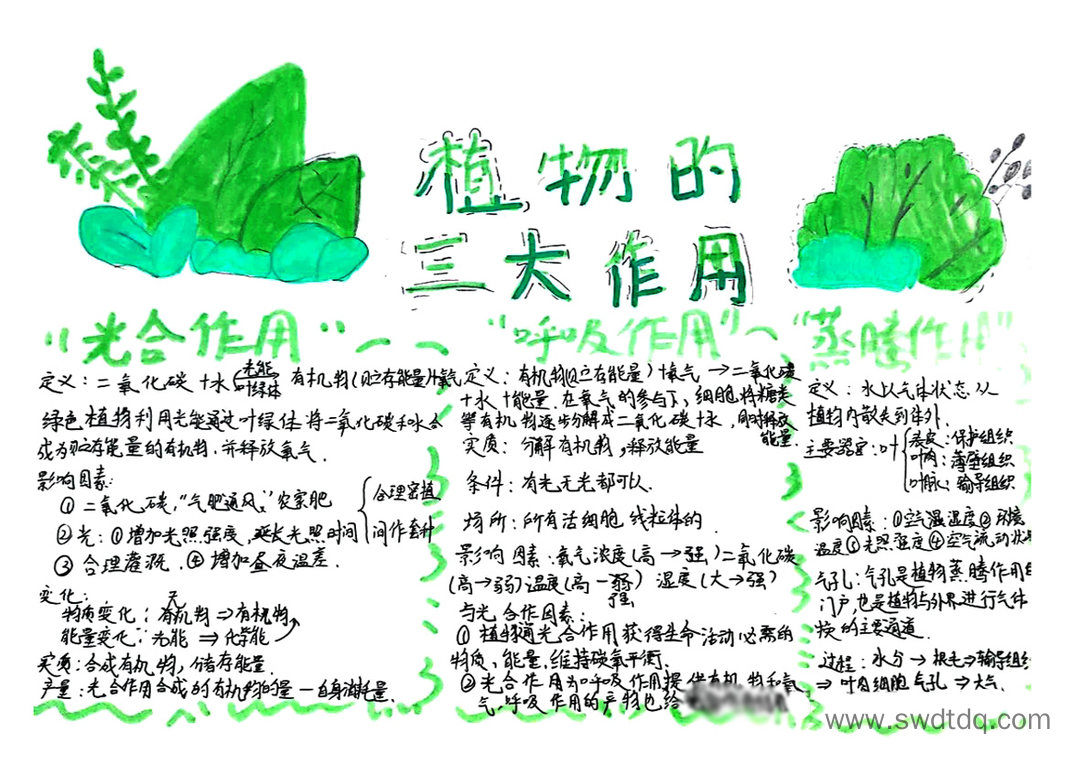 植物的
三大作用
"光合作用"
定义：二氧化碳＋水 光能 叶绿体 有机物(贮存能量)＋氧气
绿色植物利用光能通过叶绿体.将二氧化碳和水合
成为贮存能量的有机物.并释放氧气.
影响因素:
①二氧化碳,"气肥通风",农家肥
②光:①增加光照强度,延长光照时间
合理密植
间作套种
③合理灌溉.④增加昼夜温差.
变化:
物质变化:有机物⇒有机物
无
能量变化:光能⇒化学能
实质:合成有机物,储存能量.
产量:光合作用合成的有机物的量一自身消耗量.
"呼吸作用"
定义:有机物(贮存能量)＋氧气→二氧化碳
＋水＋能量.在氧气的参与下,细胞将糖类
等有机物逐步分解成二氧化碳＋水,同时释放
能量.
实质:分解有机物,释放能量
条件:有光无光都可以.
场所:所有活细胞线粒体的.
影响因素:氧气浓度(高→强)二氧化碳
(高→弱)温度(高一弱)湿度(大→强)
强
与光合作因素:
①植物通光合作用获得生命活动必需的
物质、能量,维持碳氧平衡.
②光合作用为呼吸作用提供有机物和氧
气,呼吸作用的产物也给
"蒸腾作用"
定义:水以气体状态从
植物内散失到体外.
主要器官:叶
表皮:保护组织
叶肉:薄壁组织
叶脉:输导组织
影响因素:①空气湿湿度②环境
温度③光照强度④空气流动状
气孔:气孔是植物蒸腾作用
门户,也是植物与外界进行气体
换的主要通道.
过程:水分→根毛⇒输导组
⇒叶肉细胞气孔⇒大气.
www.swdtdq.com